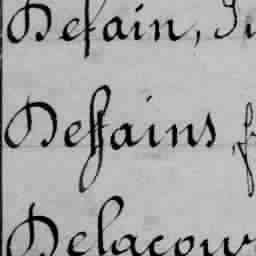 Defain, Ju
Deffains, f
Delacour